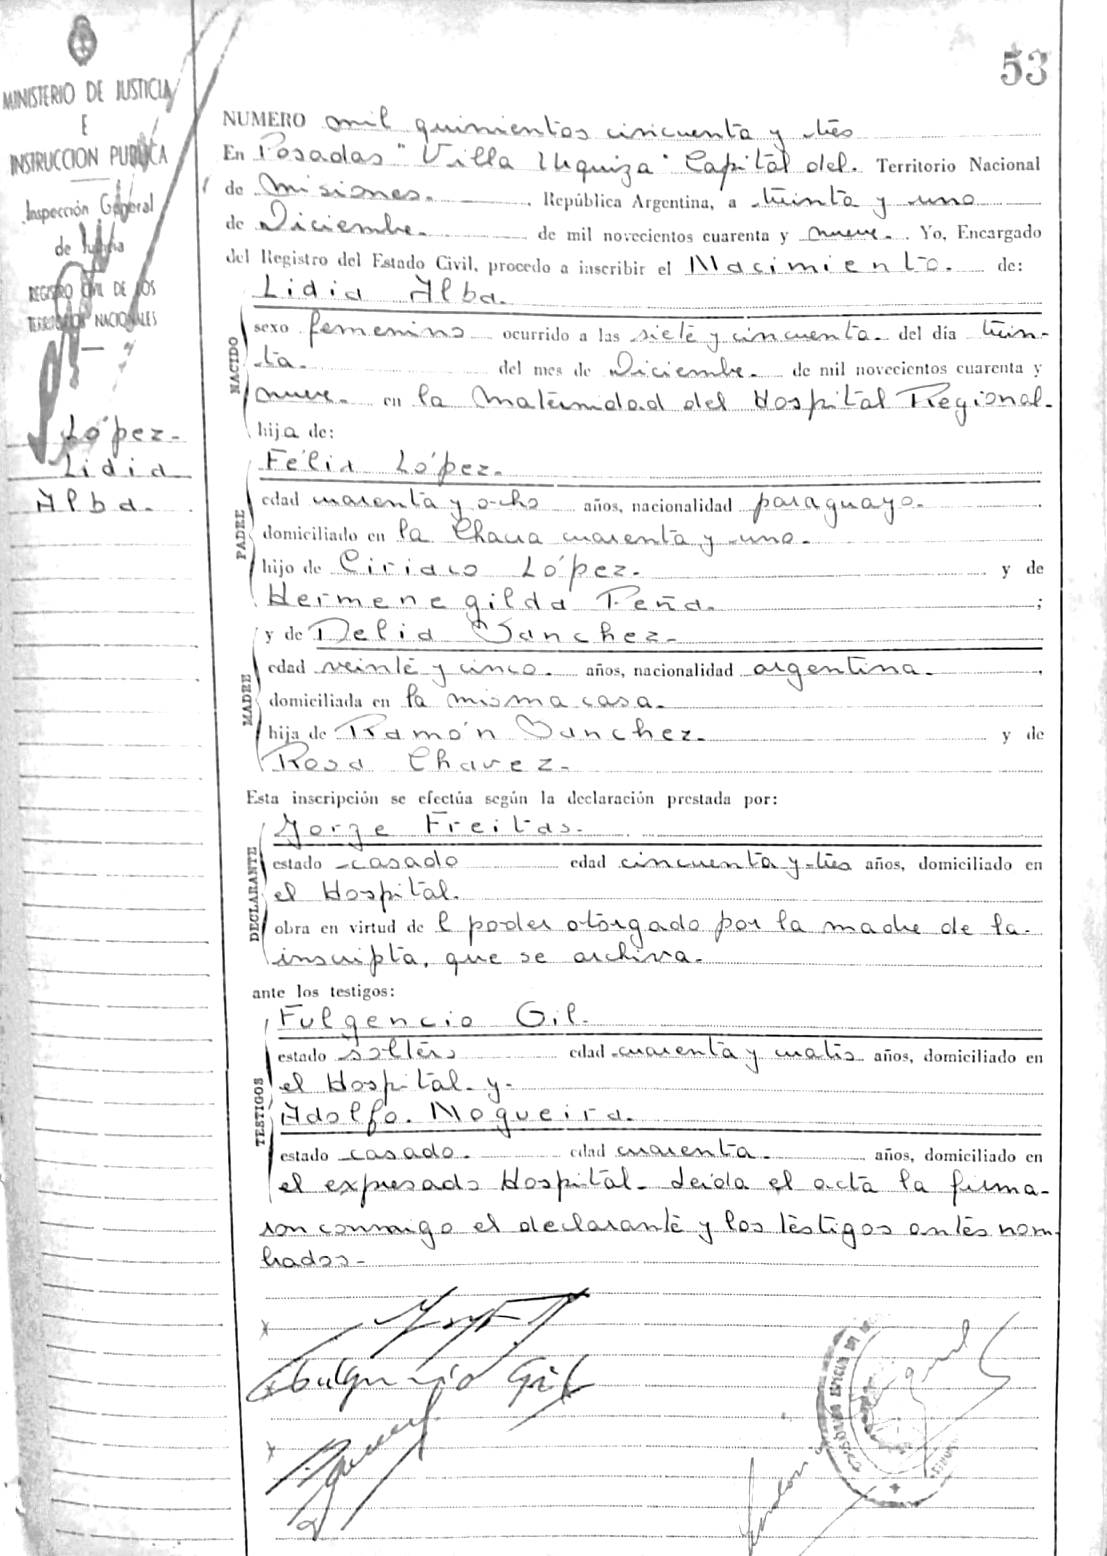 53
MINISTERIO DE JUSTICIA
E
INSTRUCCION PUBLICA
Inspección General
de Justicia
REGISTRO CIVIL DE LOS
TERRITORIOS NACIONALES
López-
Lidia
Alba.
NUMERO mil quinientos cincuenta y tres
En Posadas "Villa Urquiza" Capital del. Territorio Nacional
de Misiones. República Argentina, a treinta y uno
de Diciembre. de mil novecientos cuarenta y nueve. Yo, Encargado
del Registro del Estado Civil, procedo a inscribir el Nacimiento. de:
NACIDO
Lidia Alba.
sexo femenino ocurrido a las siete y cincuenta. del día trein-
ta. del mes de Diciembre. de mil novecientos cuarenta y
nueve. en la Maternidad del Hospital Regional.
hija de:
PADRE
Félix López.
edad cuarenta y ocho años, nacionalidad paraguayo.
domiciliado en la Chacra cuarenta y uno.
hijo de Ciriaco López. y de
Hermenegilda Peña. ;
MADRE
y de Delia Sanchez-
edad veinte y cinco. años, nacionalidad argentina.
domiciliada en la misma casa.
hija de Ramón Sanchez. y de
Rosa Chavez-
Esta inscripción se efectúa según la declaración prestada por:
DECLARANTE
Jorge Freitas.
estado casado edad cincuenta y tres años, domiciliado en
el Hospital.
obra en virtud de l poder otorgado por la madre de la.
inscripta, que se archiva.
ante los testigos:
TESTIGOS
Fulgencio Gil.
estado soltero edad cuarenta y cuatro años, domiciliado en
el Hospital. y.
Adolfo. Nogueira.
estado casado. edad cuarenta. años, domiciliado en
el expresado Hospital. Leida el acta la firma-
ron conmigo el declarante y los testigos antes nom
brados-
Fulgencio Gil